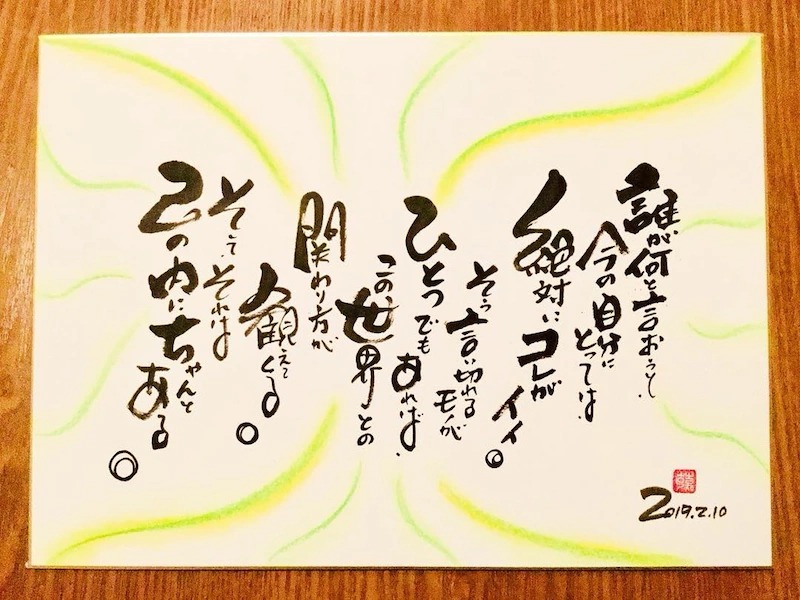 誰が何と言おうとも
今の自分に
とっては、
絶対に
コレが
イイ。
そう言い切れる
モノが
ひとつでもあれば、
この世界との
関わり方が
観えてくる。
そぅ、それは
己の内にちゃんと
ある。
2019.2.10